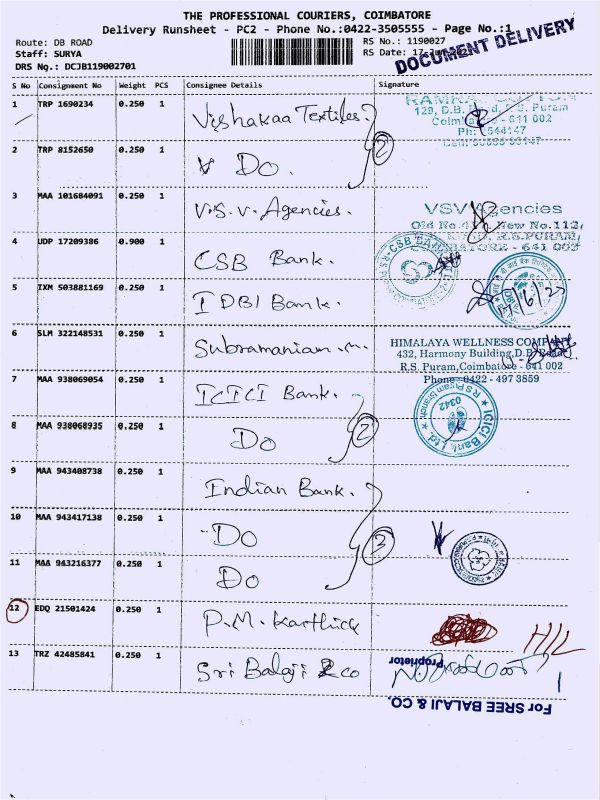 THE PROFESSIONAL COURIERS, COIMBATORE
Delivery Runsheet - PC2 - Phone No.:0422-3505555 - Page No.:1
Route: DB ROAD
Staff: SURYA
DRS No.: DCJB119002701
RS No.: 1190027
RS Date: 17-Jun-
DOCUMENT DELIVERY
S No Consignment No Weight PCS Consignee Details Signature
1 TRP 1690234 0.250 1 Vishakaa Textiles.
129, D.B. R.S. Puram
641 002
Ph: 2544147
2 TRP 8152650 0.250 1 Do. 2
3 MAA 101684091 0.250 1 V.S.V. Agencies.
VSV Agencies
Old No. New No.112,
R.S.PURAM,
COIMBATORE - 641 002
4 UDP 17209386 0.900 1 CSB Bank.
5 IXM 503881169 0.250 1 IDBI Bank.
17/6/22
6 SLM 322148531 0.250 1 Subramaniam .m.
HIMALAYA WELLNESS COMPANY
432, Harmony Building, D.B. Road
R.S. Puram, Coimbatore - 641 002
Phone 0422 - 497 3859
7 MAA 938069054 0.250 1 ICICI Bank.
ICICI Bank Ltd. R S Puram Branch 0342
8 MAA 938068935 0.250 1 Do 2
9 MAA 943408738 0.250 1 Indian Bank.
10 MAA 943417138 0.250 1 Do
11 MAA 943216377 0.250 1 Do 3
12 EDQ 21501424 0.250 1 P.M. Karthick
13 TRZ 42485841 0.250 1 Sri Balaji & co
Proprietor
For SREE BALAJI & CO.